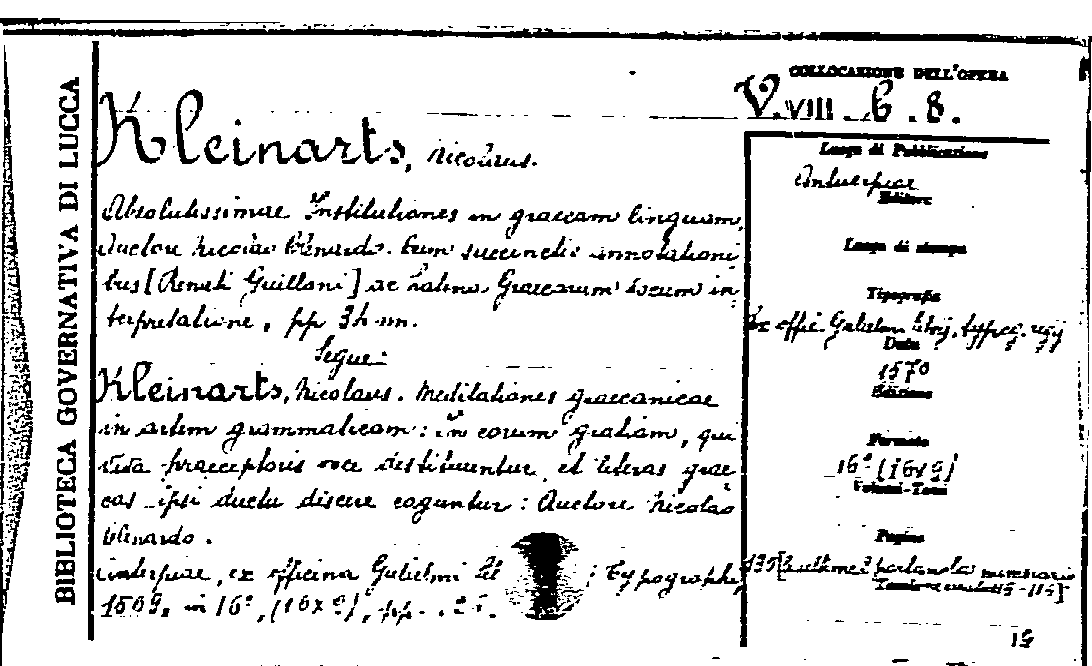 BIBLIOTECA GOVERNATIVA DI LUCCA
COLLOCAZIONE DELL'OPERA
V. VIII. 6. 8.
Kleinarts, Nicolaus.
Absolutissimae Institutiones in graecam linguam,
Auctore Nicolao Clenardo. Cum succinctis annotationi
bus [Renati Guillani] ac Latina Graecarum vocum in
terpretatione, pp 3h nn.
Segue:
Kleinarts, Nicolaus. Meditationes graecanicae
in artem grammaticam: In eorum gratiam, qui
viva praeceptoris voce destituuntur, et literas grae
cas ipsi ductu discere coguntur: Auctore Nicolao
Clenardo.
Antuerpiae, ex officina Gulielmi ; typographi,
in 16°, (16x9), pp.
Luogo di Pubblicazione
Antuerpiae
Editore
Luogo di stampa
Tipografia
Ex offic. typog. regij
Data
1570
Edizione
Formato
16° (16x9)
Volumi-Tomi
Pagine
135
15